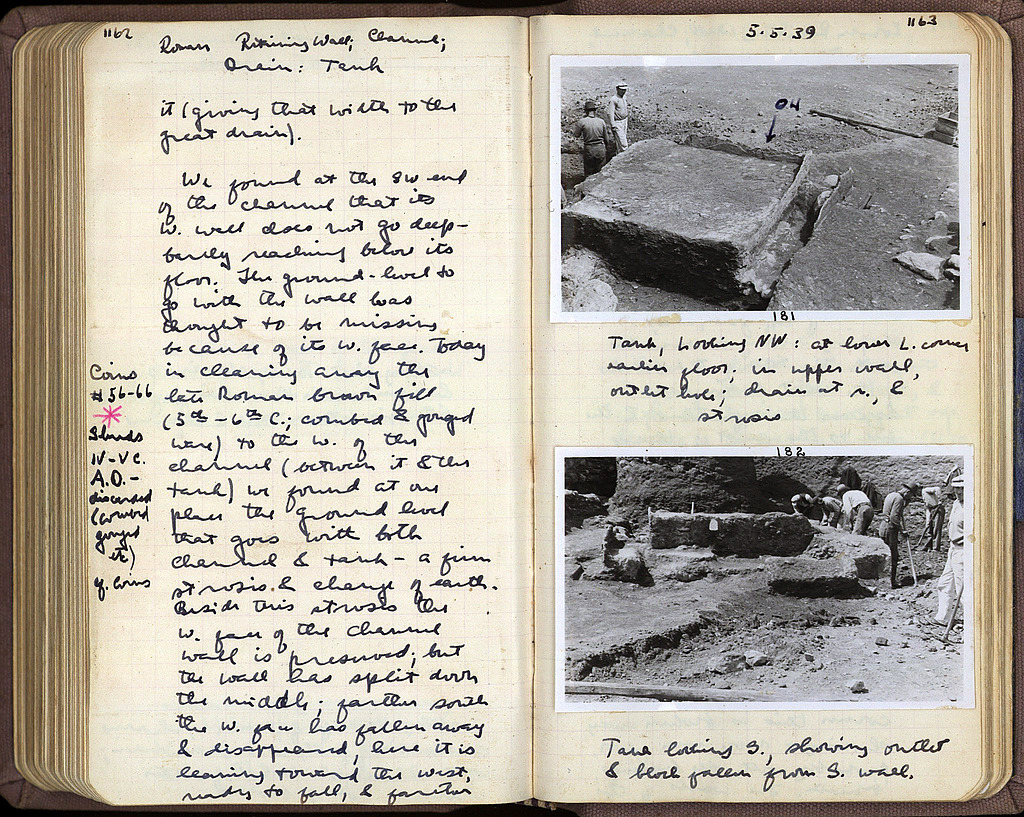 1162
Roman Retaining Wall; Channel;
Drain: Tank
it (giving that width to the
great drain).
We found at the SW end
of the channel that its
W. wall does not go deep-
barely reaching below its
floor. The ground-level to
go with the wall was
thought to be missing
because of its W. face. Today
in cleaning away the
late Roman brown fill
(5th-6th C.; combed & gouged
ware) to the W. of the
channel (between it & the
tank) we found at one
place the ground level
that goes with both
channel & tank - a firm
strosis & change of earth.
Beside this strosis the
W. face of the channel
wall is preserved; but
the wall has split down
the middle; farther south
the W. face has fallen away
& disappeared, here it is
leaning toward the west,
ready to fall, & farther
Coins
#56-66
Sherds
IV-V C.
A.D.-
discarded
(combed
gouged
etc)
cf. coins
1163
5.5.39
OH
181
Tank, looking NW: at lower L. corner
earlier floor; in upper wall,
outlet hole; drain at r., &
strosis
182
Tank looking S., showing outlet
& block fallen from S. wall.